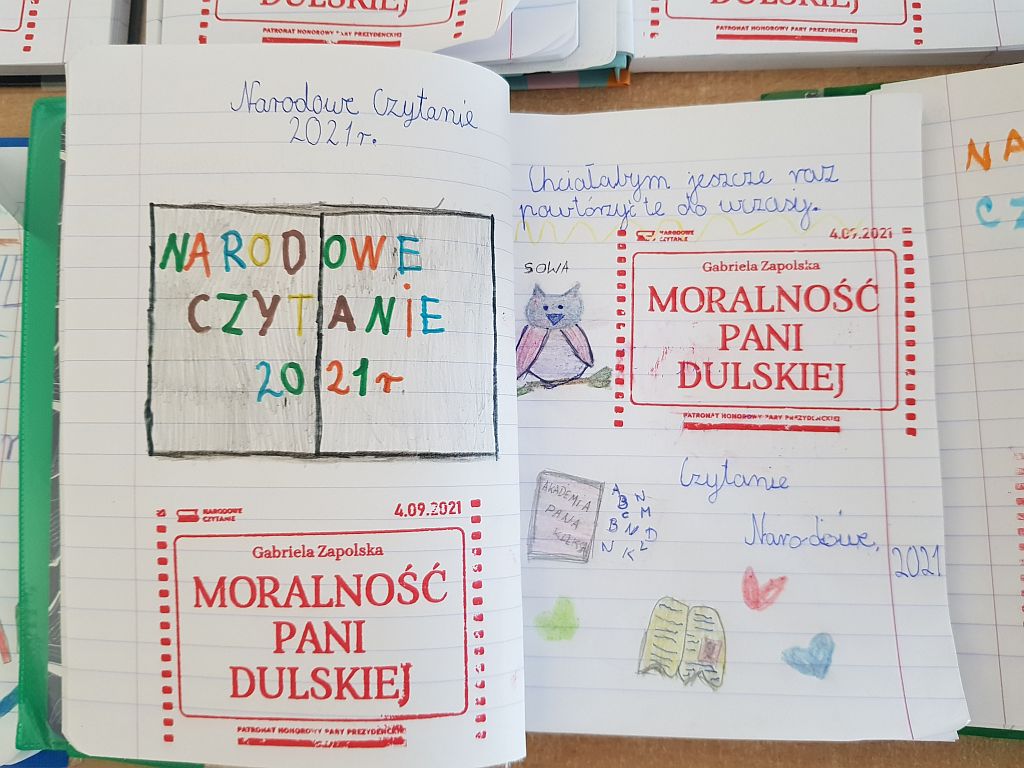 DULSKIEJ
PATRONAT HONOROWY PARY PREZYDENCKIEJ
DULSKIEJ
PATRONAT HONOROWY PARY PREZYDENCKIEJ
Narodowe Czytanie
2021r.
NARODOWE
CZYTANIE
2021r
NARODOWE
CZYTANIE
4.09.2021
Gabriela Zapolska
MORALNOŚĆ
PANI
DULSKIEJ
PATRONAT HONOROWY PARY PREZYDENCKIEJ
Chciałabym jeszcze raz
powtórzyć te do wrzasy.
NARODOWE
CZYTANIE
4.09.2021
SOWA
Gabriela Zapolska
MORALNOŚĆ
PANI
DULSKIEJ
PATRONAT HONOROWY PARY PREZYDENCKIEJ
Czytanie
Narodowe,
2021
AKADEMIA
PANA
KLEKSA
A B C N M
B N D
N K L
NA
CZ